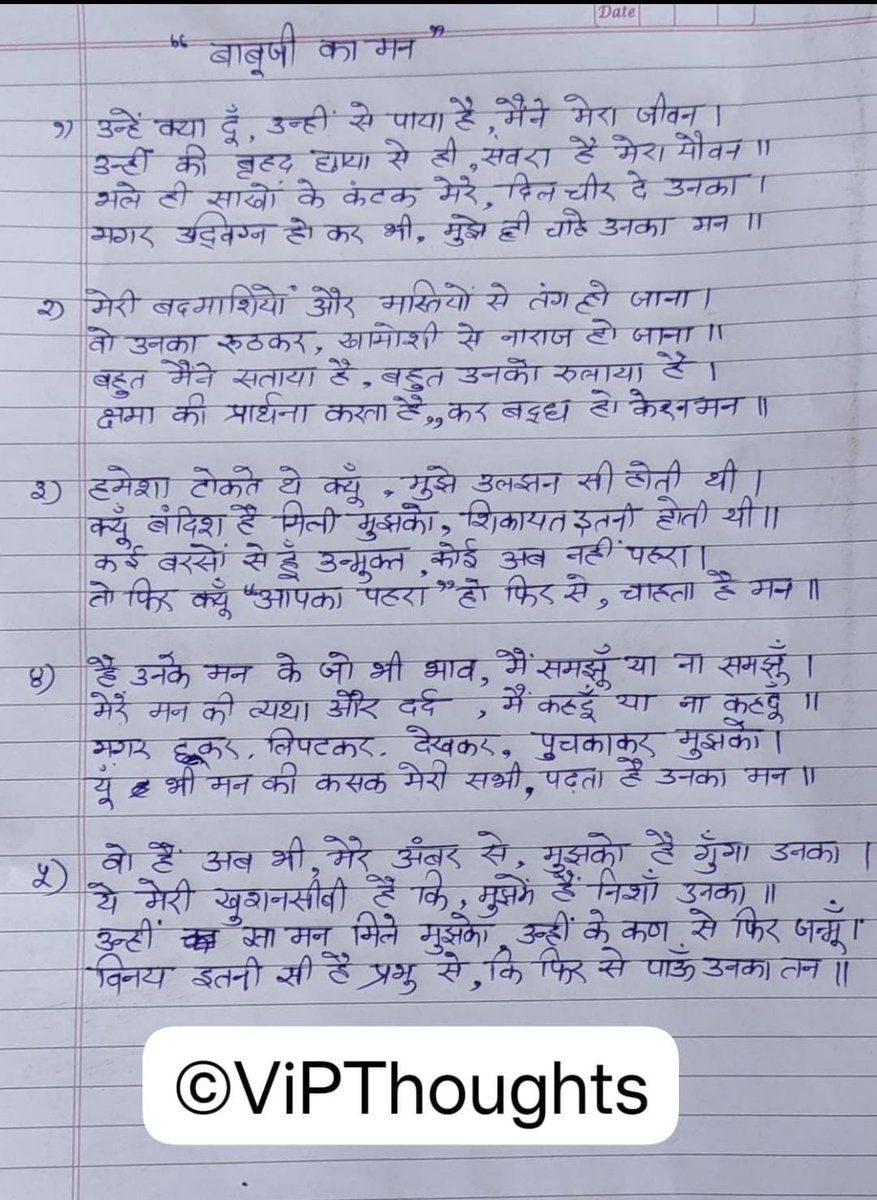 Date
“ बाबूजी का मन ”
१) उन्हें क्या दूँ, उन्हीं से पाया है, मैंने मेरा जीवन।
उन्हीं की बृहद छाया से ही, सवरा है मेरा यौवन॥
भले ही साखों के कंटक मेरे, दिल चीर दे उनका।
मगर उद्विग्न हो कर भी, मुझे ही चाहे उनका मन॥
२) मेरी बदमाशियों और मस्तियों से तंग हो जाना।
वो उनका रूठकर, खामोशी से नाराज हो जाना॥
बहुत मैंने सताया है, बहुत उनको रुलाया है।
क्षमा की प्रार्थना करता है,, कर बद्ध हो के मन॥
३) हमेशा टोकते थे क्यूँ, मुझे उलझन सी होती थी।
क्यूँ बंदिश है मिली मुझको, शिकायत इतनी होती थी॥
कई बरसों से हूँ उन्मुक्त, कोई अब नहीं पहरा।
तो फिर क्यूँ “आपका पहरा” हो फिर से, चाहता है मन॥
४) है उनके मन के जो भी भाव, मैं समझूँ या ना समझूँ।
मेरे मन की व्यथा और दर्द, मैं कहदूँ या ना कहदूँ॥
मगर छूकर, लिपटकर, देखकर, पुचकाकर मुझको।
यूँ भी मन की कसक मेरी सभी, पढ़ता है उनका मन॥
५) वो हैं अब भी, मेरे अंबर से, मुझको है गुँगा उनका।
ये मेरी खुशनसीबी है कि, मुझमें हैं निशाँ उनका॥
उन्हीं सा मन मिले मुझको, उन्हीं के कण से फिर जन्मूँ।
विनय इतनी सी है प्रभु से, कि फिर से पाऊँ उनका तन॥
©ViPThoughts